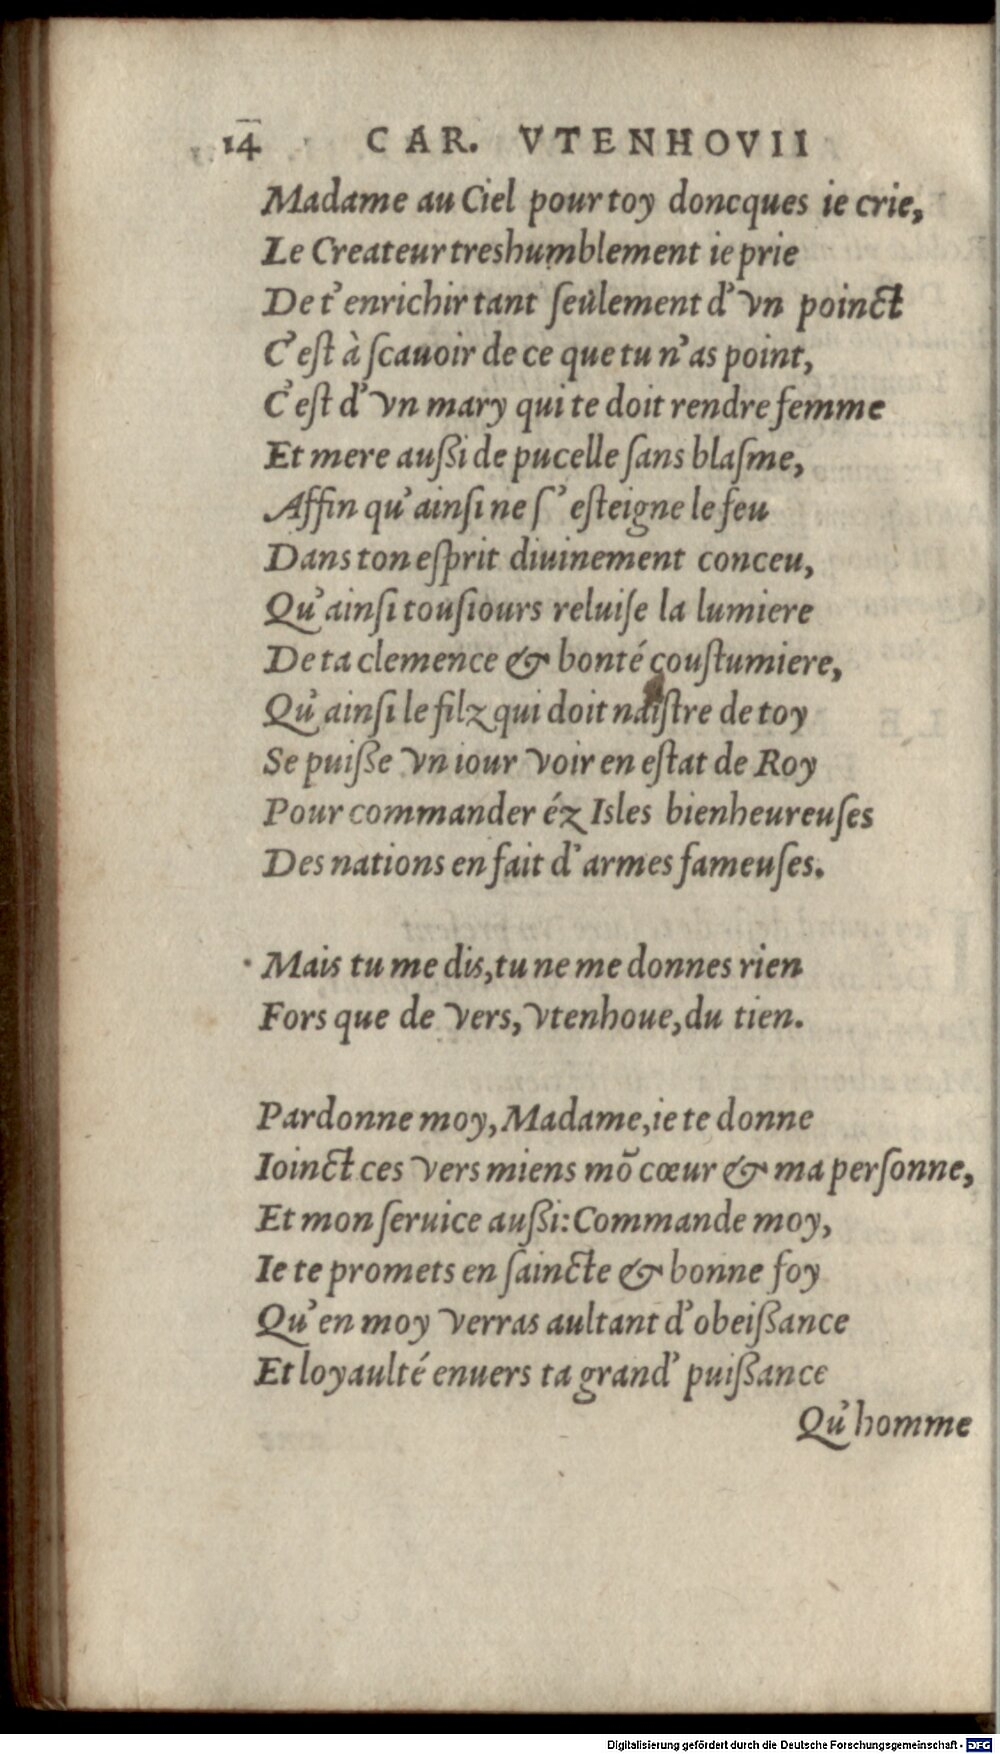 14 CAR. VTENHOVII
Madame au Ciel pour toy doncques ie crie,
Le Createur treshumblement ie prie
De t'enrichir tant ſeulement d'vn poinct
C'eſt à ſcauoir de ce que tu n'as point,
C'eſt d'vn mary qui te doit rendre femme
Et mere auſſi de pucelle ſans blaſme,
Affin qu'ainſi ne ſ'eſteigne le feu
Dans ton eſprit diuinement conceu,
Qu'ainſi touſiours reluiſe la lumiere
De ta clemence & bonté couſtumiere,
Qu'ainſi le filz qui doit naiſtre de toy
Se puiſſe vn iour voir en eſtat de Roy
Pour commander éz Isles bienheureuſes
Des nations en fait d'armes fameuſes.
Mais tu me dis, tu ne me donnes rien
Fors que de vers, vtenhoue, du tien.
Pardonne moy, Madame, ie te donne
Ioinct ces vers miens mō cœur & ma perſonne,
Et mon ſeruice auſſi: Commande moy,
Ie te promets en ſaincte & bonne foy
Qu'en moy verras aultant d'obeiſſance
Et loyaulté enuers ta grand' puiſſance
Qu'homme
Digitalisierung gefördert durch die Deutsche Forschungsgemeinschaft - DFG